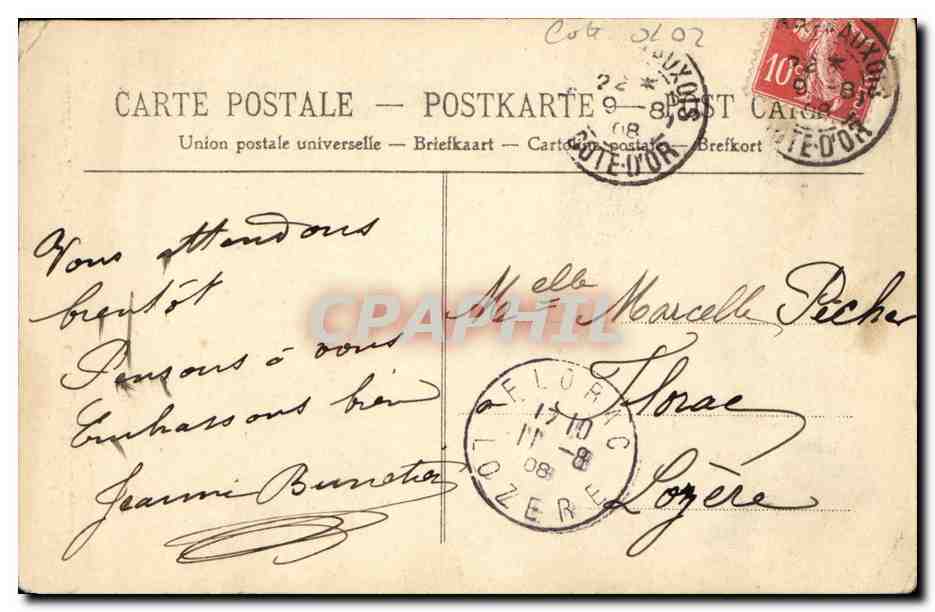 Cote
CARTE POSTALE — POSTKARTE — POST CARD
Union postale universelle — Briefkaart — Cartolina postale — Brefkort
10c
22 *
9 -8
08
COTE-D'OR
22 *
9 -8
08
COTE-D'OR
Vous attendons
bientôt
Pensons à vous
Embrassons bien
Jeanne
CPAPHIL
Melle Marcelle Pécher
à Florac
Lozère
FLORAC
11 -8
08
LOZERE